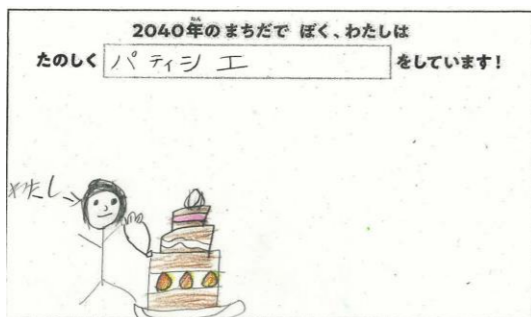 2040年のまちだで ぼく、わたしは
ねん
たのしく パティシエ をしています!
わたし